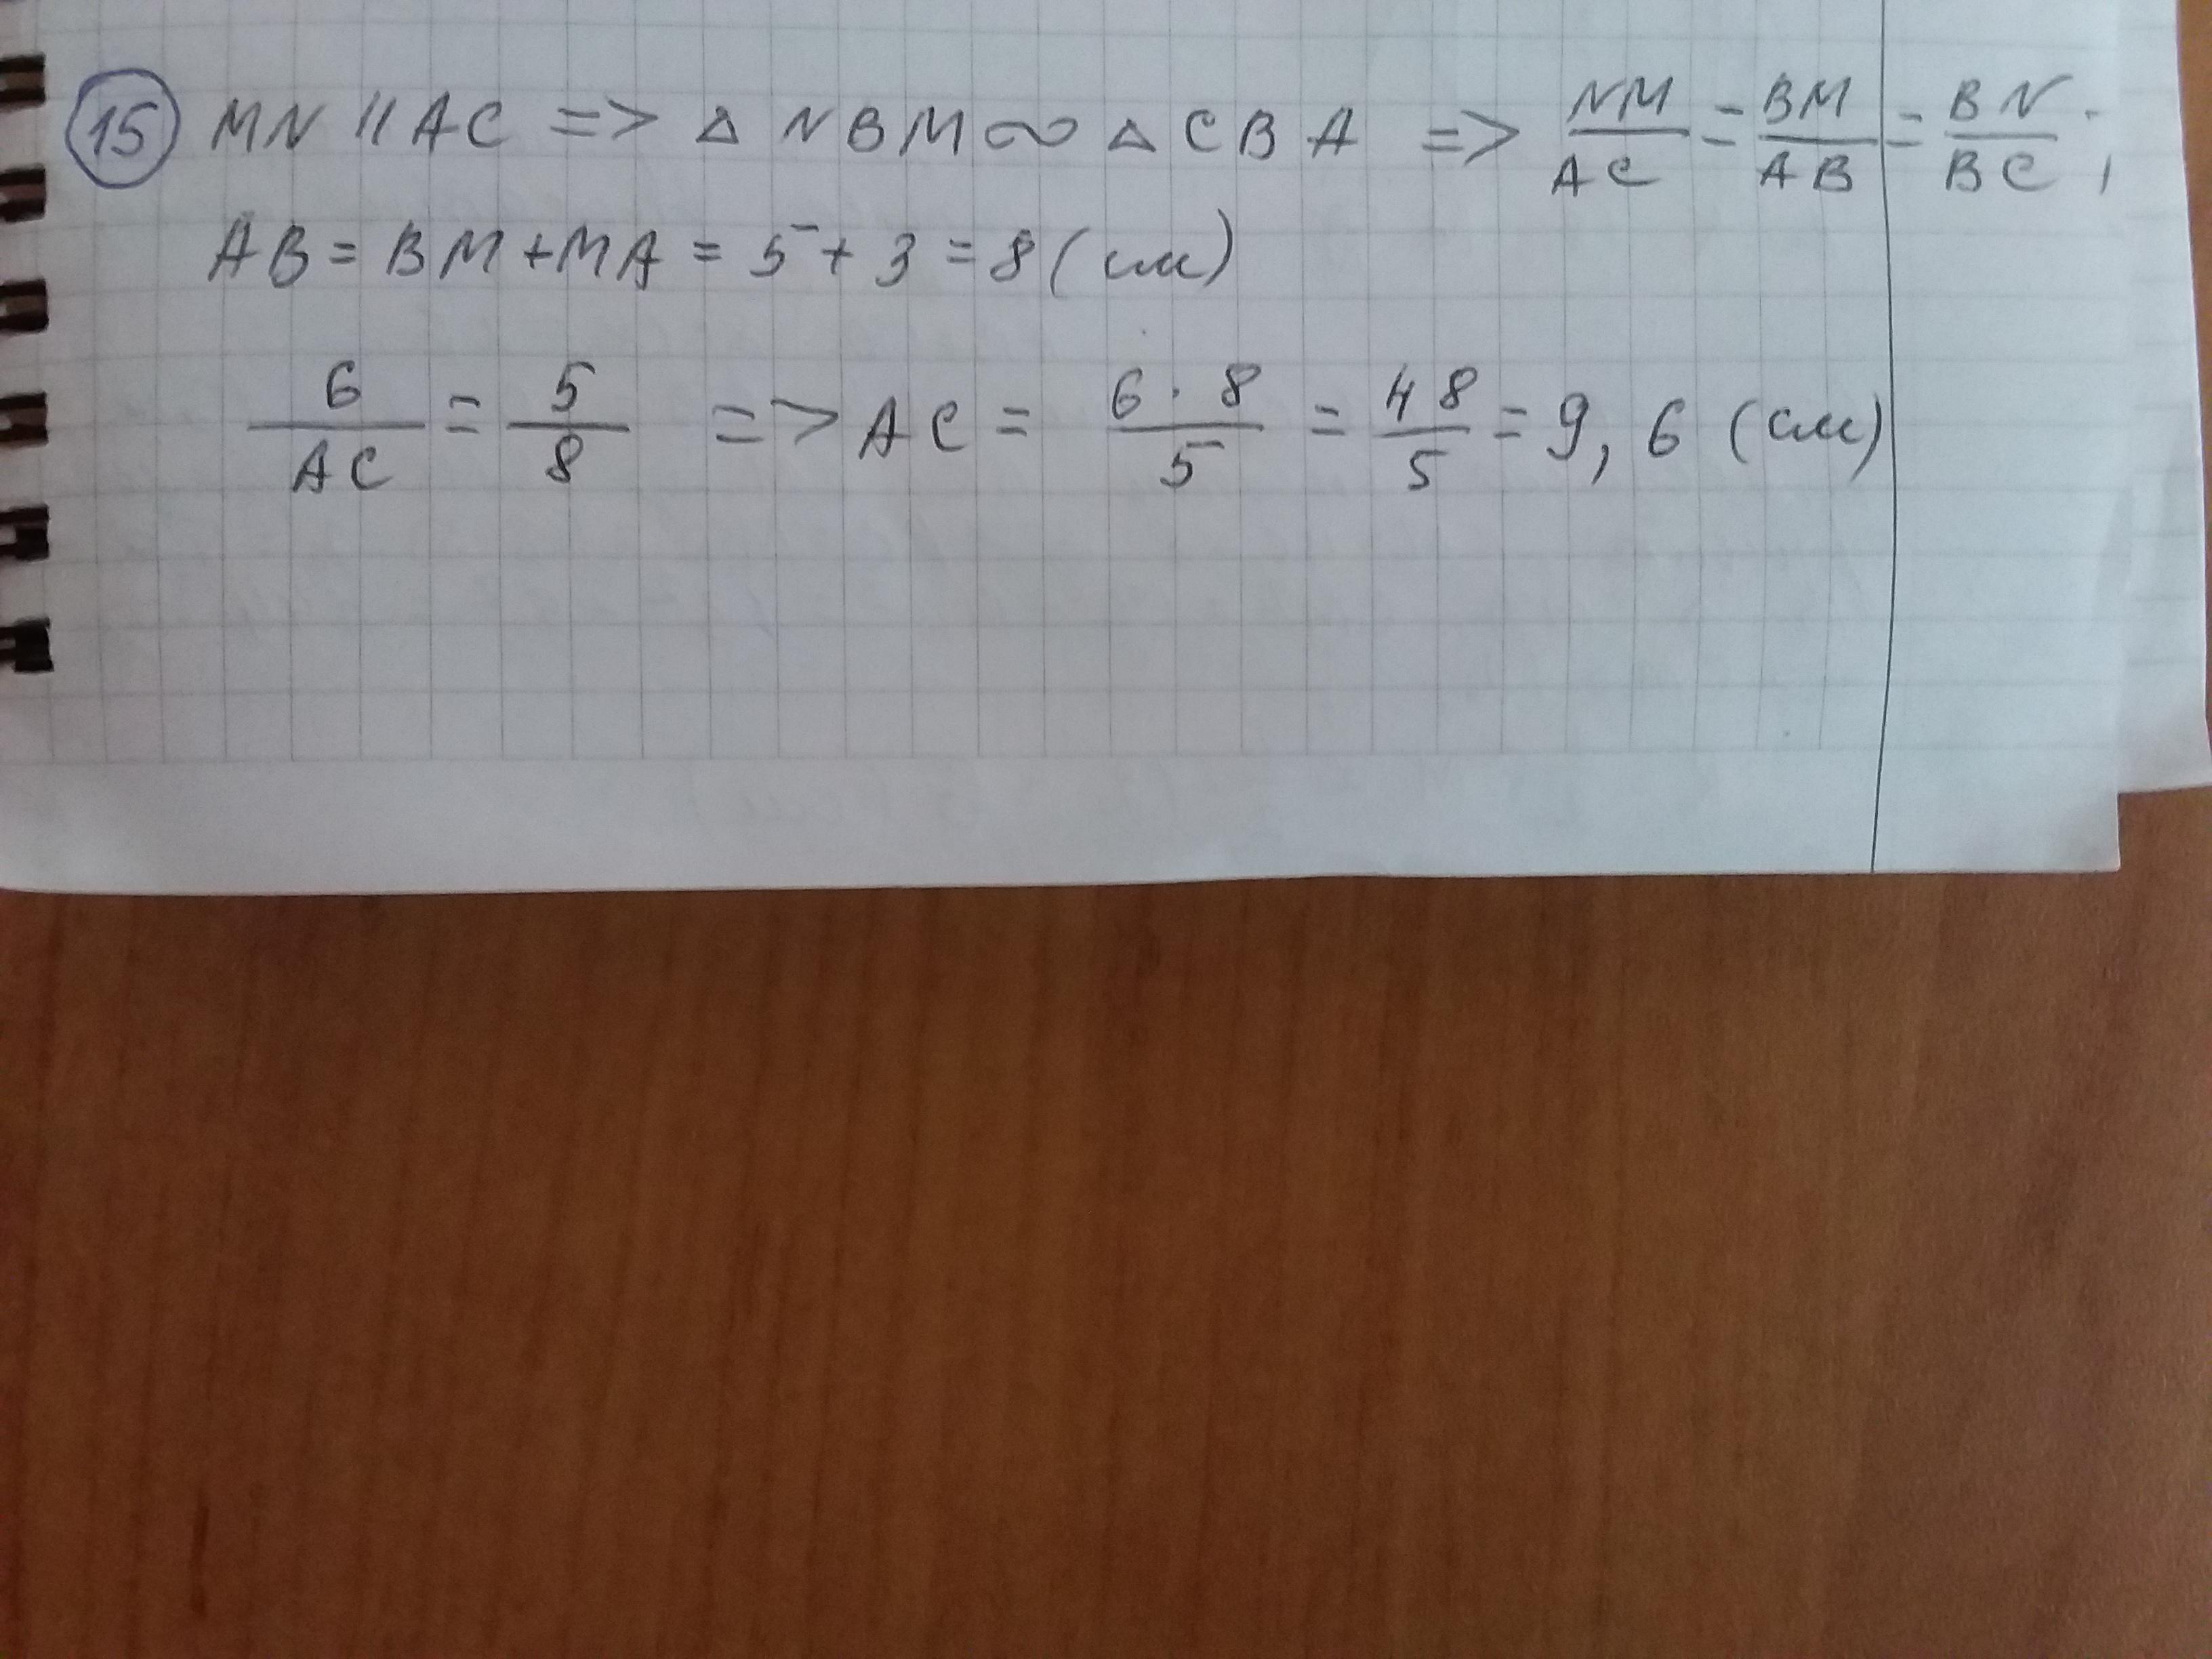 15 MN || AC => △ NBM ∾ △ CBA => NM/AC = BM/AB = BN/BC ;
AB = BM + MA = 5 + 3 = 8 (см)
6/AC = 5/8 => AC = 6 · 8/5 = 48/5 = 9,6 (см)